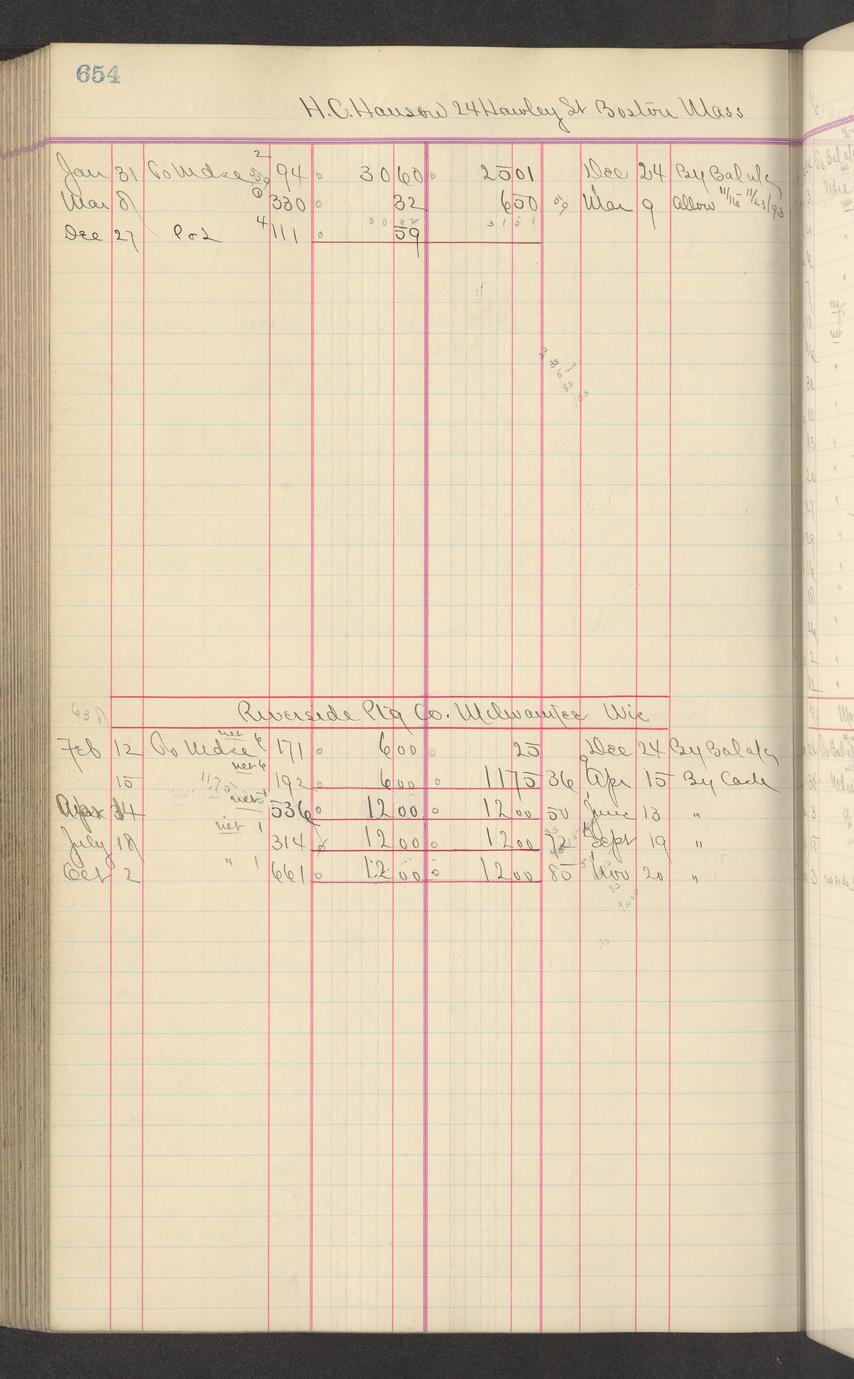 654
H.C. Hanson 24 Hawley St Boston Mass
Jan 31 To Mdse 2 94 30 60 25 01 Dec 24 By Bal a/c
Mar 8 330 32 6 50 Mar 9 Allow 11/15 11/23/93
Dec 27 P&L 4 111 59
30 92 31 51
638
Riverside Ptg Co. Milwaukee Wis
Feb 12 To Mdse net 6 171 6 00 25 Dec 24 By Bal a/c
15 net 6 192 6 00 11 75 36 Apr 15 By Cash
Apr 14 net 536 12 00 12 00 50 June 13 "
July 18 net 1 314 12 00 12 00 72 Sept 19 "
Oct 2 " 1 661 12 00 12 00 85 Nov 20 "